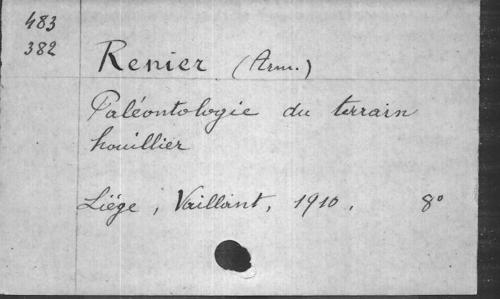 483
382
Renier (Arm.)
Paléontologie du terrain
houillier
Liége, Vaillant, 1910. 8°